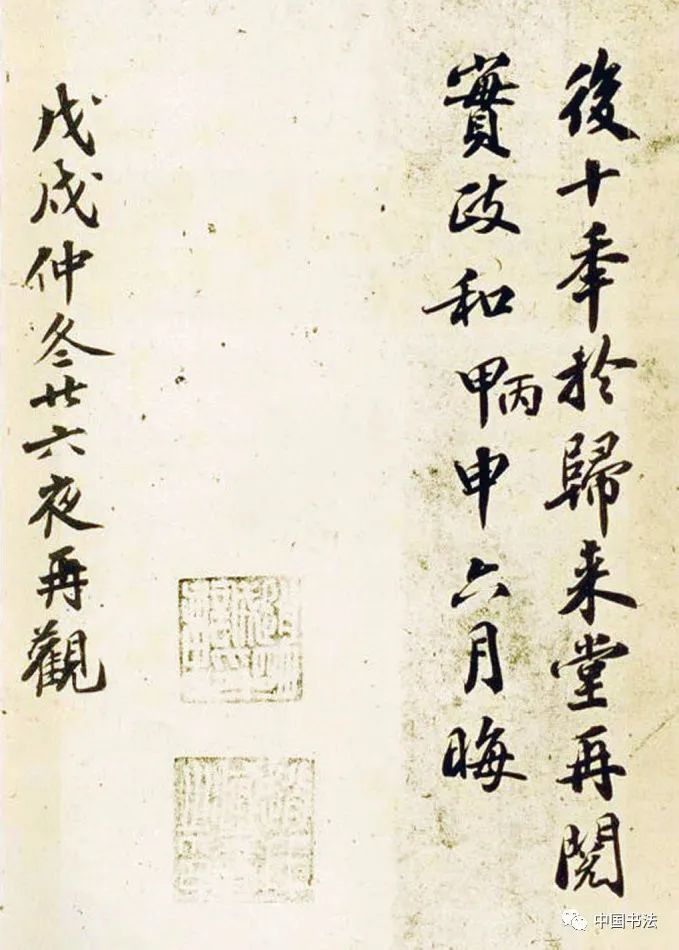 後十年於歸来堂再閱
實政和甲丙申六月晦
戊戌仲冬廿六夜再觀
中国书法